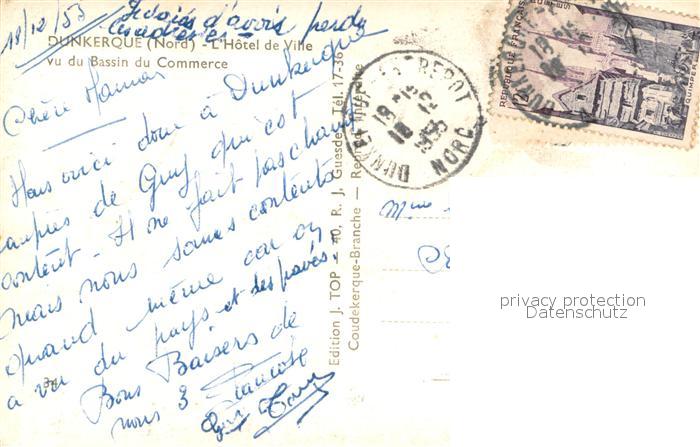 18/12/53 Je vois d'avoir perdu
DUNKERQUE (Nord) - L'Hôtel de Ville
vu du Bassin du Commerce
Chère Maman
Nous voici donc à Dunkerque
auprès de Guy qui est
content - Il ne fait pas chaud
mais nous sommes contents
quand même car on
a vu du pays et des pavés.
Bons Baisers de
nous 3.
Edition J. TOP - 40, R. J. Guesde - Tél. 17-36
Coudekerque-Branche - Reprod. Interdite
DUNKERQUE ENTREPOT
18
18 12
1953
NORD
REPUBLIQUE FRANÇAISE
12F
QUIMPER
Mme
privacy protection
Datenschutz